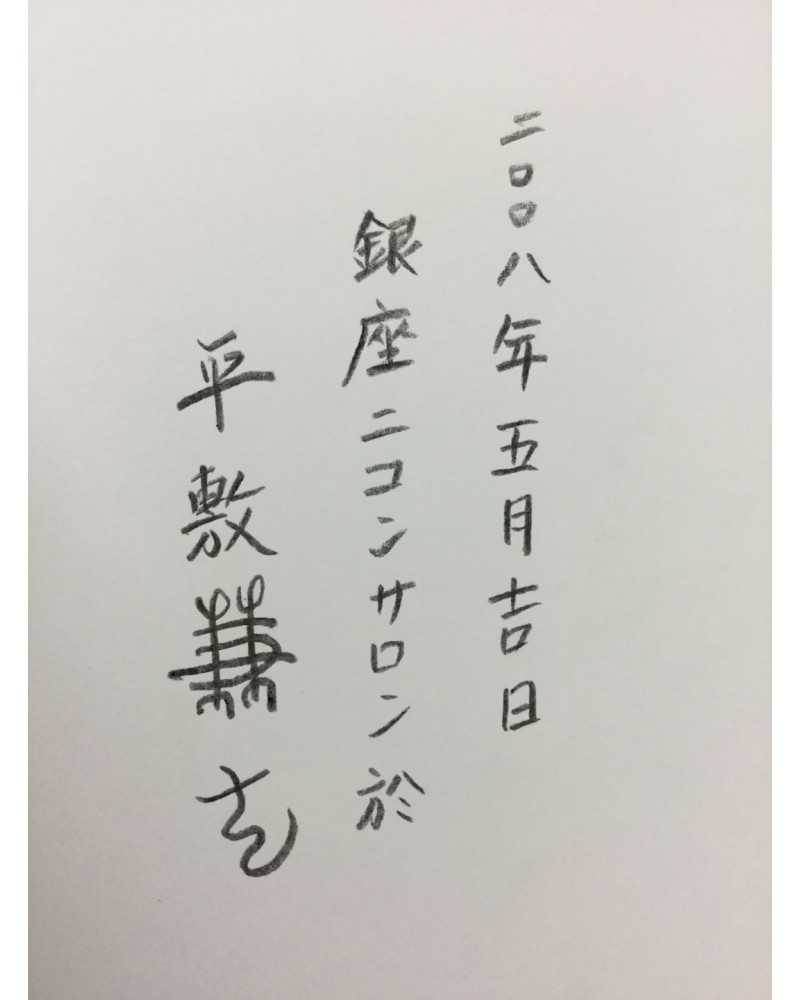 二〇〇八年五月吉日
銀座ニコンサロン於
平敷兼七